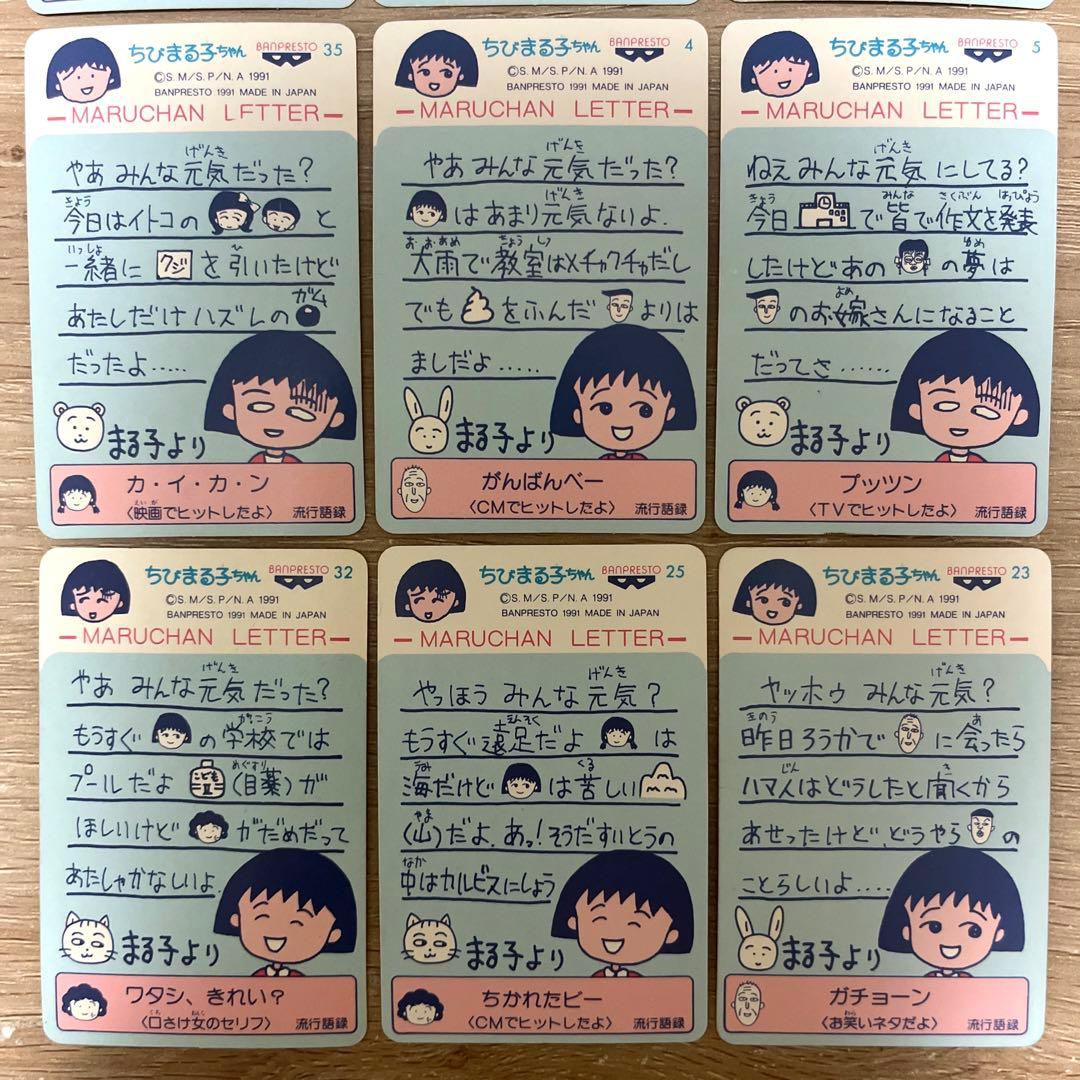 ちびまる子ちゃん BANPRESTO 35
©S.M/S.P/N.A 1991
BANPRESTO 1991 MADE IN JAPAN
MARUCHAN LETTER
げんき
やあ みんな元気だった?
きょう
今日はイトコの と
いっしょ ひ
一緒に クジ を引いたけど
ガム
あたしだけハズレの
だったよ.....
まる子より
カ・イ・カ・ン
えいが
〈映画でヒットしたよ〉 流行語録
ちびまる子ちゃん BANPRESTO 4
©S.M/S.P/N.A 1991
BANPRESTO 1991 MADE IN JAPAN
MARUCHAN LETTER
げんき
やあ みんな元気だった?
げんき
はあまり元気ないよ.
おおあめ きょうしつ
大雨で教室はメチャクチャだし
でも をふんだ よりは
ましだよ.....
まる子より
がんばんべー
〈CMでヒットしたよ〉 流行語録
ちびまる子ちゃん BANPRESTO 5
©S.M/S.P/N.A 1991
BANPRESTO 1991 MADE IN JAPAN
MARUCHAN LETTER
げんき
ねえ みんな元気にしてる?
きょう みんな さくぶん はっぴょう
今日 で皆で作文を発表
ゆめ
したけどあの の夢は
よめ
のお嫁さんになること
だってさ......
まる子より
プッツン
〈TVでヒットしたよ〉 流行語録
ちびまる子ちゃん BANPRESTO 32
©S.M/S.P/N.A 1991
BANPRESTO 1991 MADE IN JAPAN
MARUCHAN LETTER
げんき
やあ みんな元気だった?
がっこう
もうすぐ の学校では
めぐすり
プールだよ こども (目薬)が
ほしいけど がだめだって
あたしゃかなしいよ.
まる子より
ワタシ、きれい?
くち おんな
〈口さけ女のセリフ〉 流行語録
ちびまる子ちゃん BANPRESTO 25
©S.M/S.P/N.A 1991
BANPRESTO 1991 MADE IN JAPAN
MARUCHAN LETTER
げんき
やっほう みんな元気?
えんそく
もうすぐ遠足だよ は
うみ くる
海だけど は苦しい
やま
(山)だよ.あっ!そうだすいとうの
なか
中はカルピスにしよう
まる子より
ちかれたビー
〈CMでヒットしたよ〉 流行語録
ちびまる子ちゃん BANPRESTO 23
©S.M/S.P/N.A 1991
BANPRESTO 1991 MADE IN JAPAN
MARUCHAN LETTER
げんき
ヤッホゥ みんな元気?
きのう あ
昨日ろうかで に会ったら
じん き
ハマ人はどうしたと聞くから
あせったけど、どうやら の
ことらしいよ.....
まる子より
ガチョーン
わら
〈お笑いネタだよ〉 流行語録